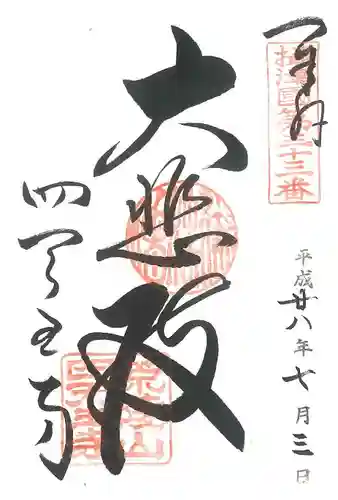 奉拝
國第三十三番
大悲殿
四天王寺
平成廿八年七月三日